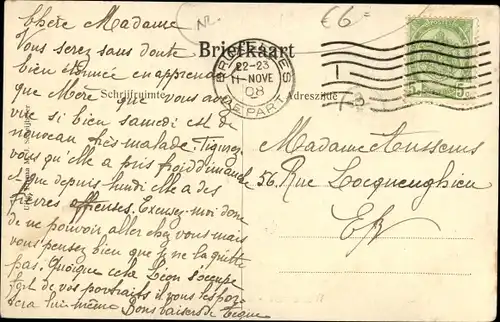 Chère Madame
Vous serez sans doute
bien étonnée en apprenant
que Mère que vous avez
vue si bien samedi est de
nouveau très malade. Figurez
vous qu'elle a pris froid dimanche
et que depuis lundi elle a des
fièvres affreuses. Excusez-moi donc
de ne pouvoir aller chez vous mais
vous pensez bien que je ne la quitte
pas. Quoique cela Léon s'occupe
fort de vos portraits il vous les por-
tera lui-même Bons baisers de
Briefkaart
Schrijfruimte
Adreszijde
BRUXELLES
22-23
11 NOVE
08
DEPART
€6
5c
Madame
56, Rue Locquenghien
E/V